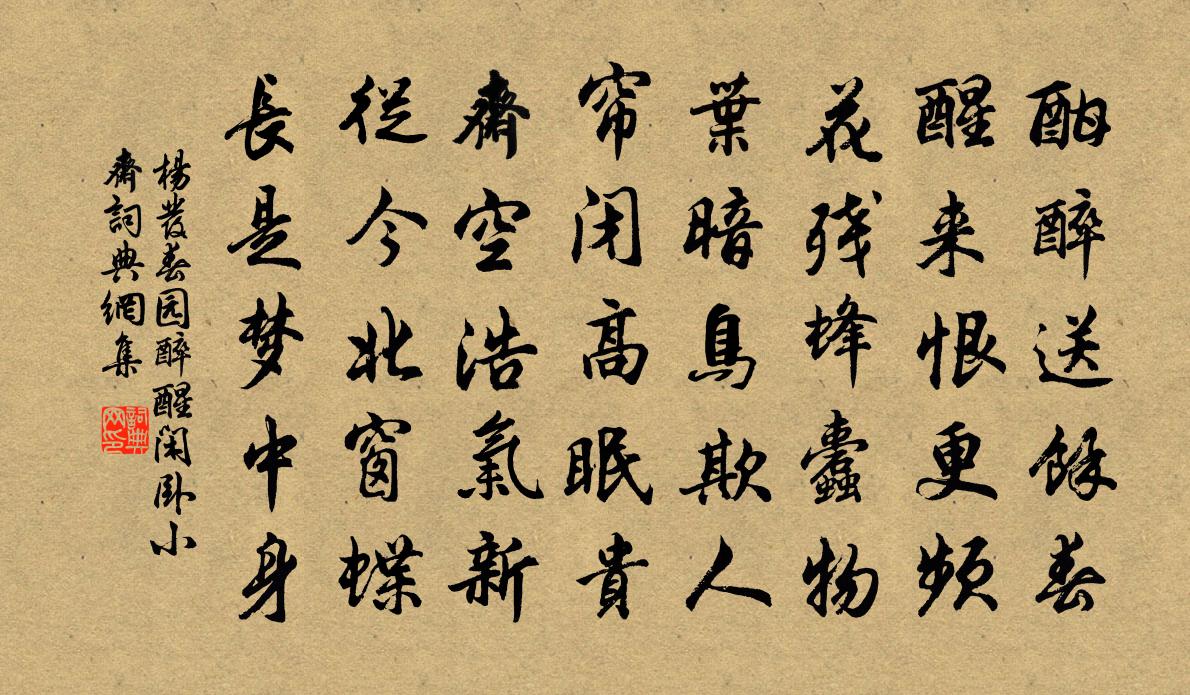 酣醉送餘春
醒来恨更頻
花残蜂蠹物
葉暗鳥欺人
帘闭高眠貴
齋空浩氣新
從今北窗蝶
長是梦中身
楊發春园醉醒闲卧小
齋詞典網集
詞典
网印